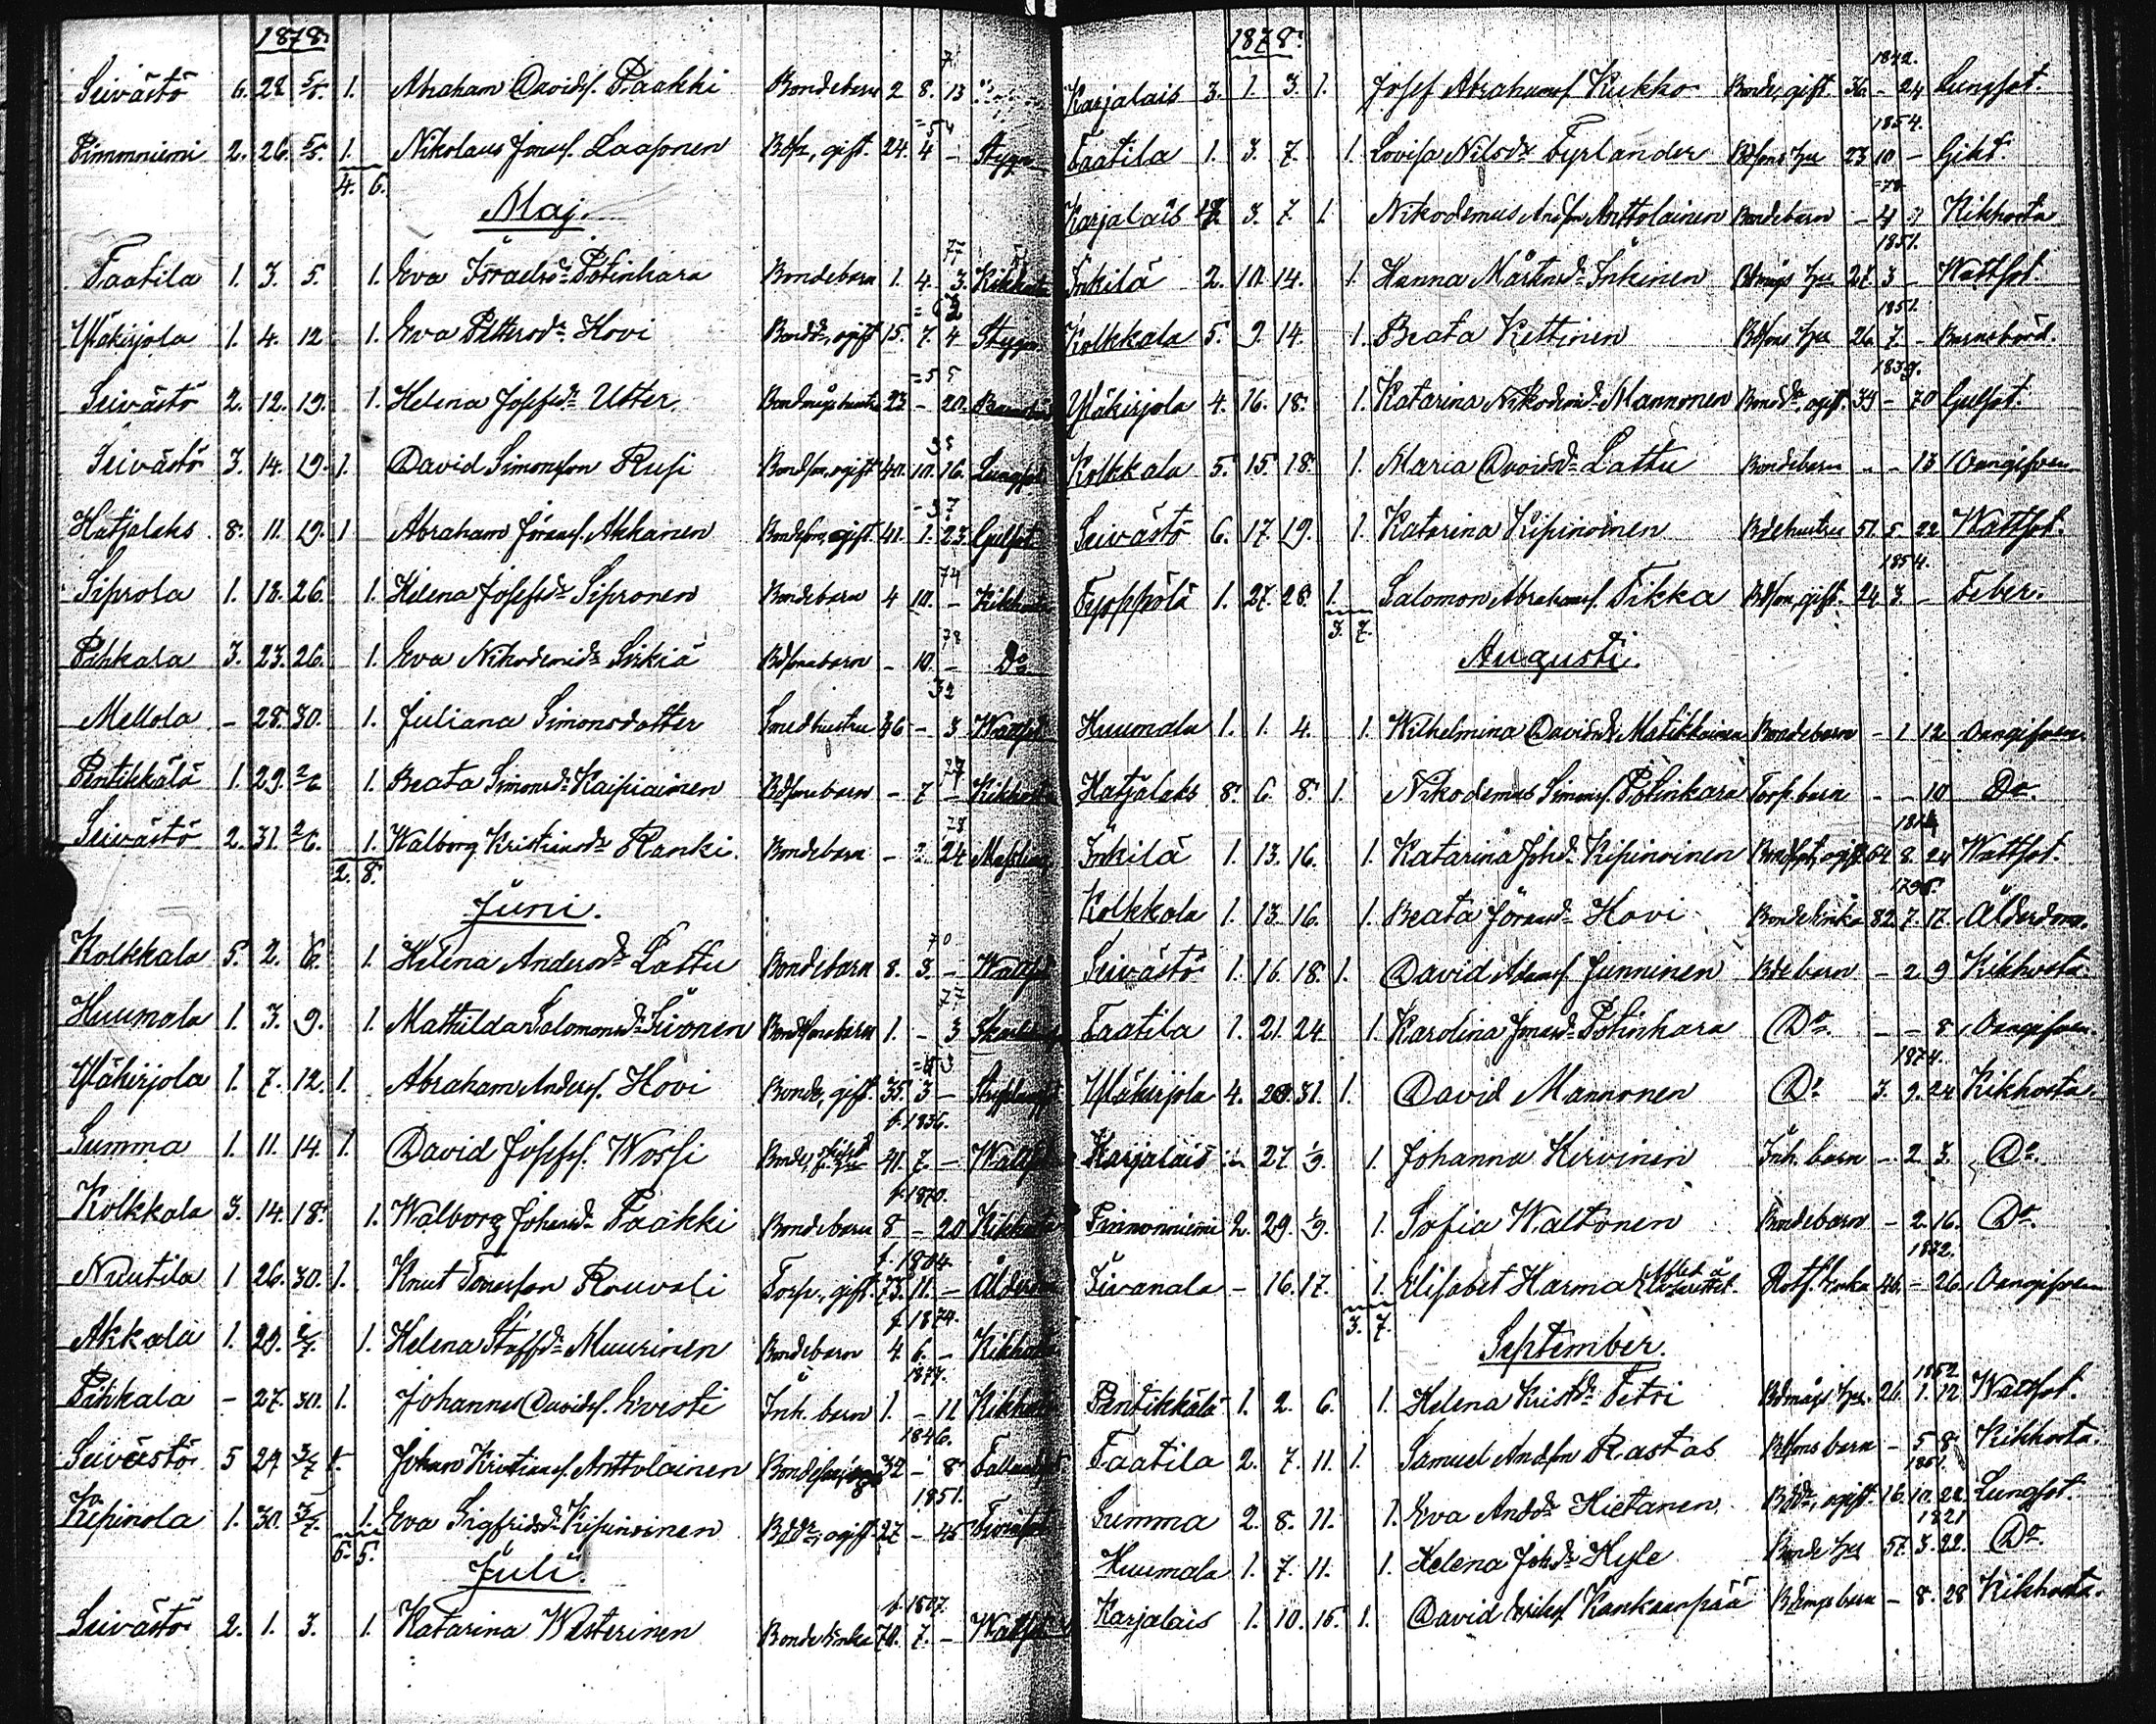 1878.
Seivästö 6. 28 5/5. 1. Abraham Davids. Paakki Bondebarn 2 8. 13
Pimmniemi 2. 26. 5/5. 1. Nikolaus Jonas. Laasonen gift. 24. 4 - Stygn
4. 6.
Maj.
Taatila 1. 3. 5. 1. Eva Israelsdr. Pötinhara Bondebarn 1. 4. 3. Kikhosta
Yläkirjola 1. 4. 12 1. Eva Pettersdr. Hovi Bonddr., ogift 15. 7. 4 Stygn.
Seivästö 2. 12. 19. 1. Helena Josefsdr. Utter 23 - 20.
Seivästö 3. 14. 19. 1. David Simonsson Rusi Bondson, ogift 40. 10. 16. Lungsot
Hatjalaks 8. 11. 19. 1 Abraham Göranss. Akkanen Bondson, gift. 41. 1. 23. Gulsot
Siprola 1. 18. 26. 1. Helena Josefsdr. Sipronen Bondebarn 4 10. - Kikhosta
Pihkala 3. 23. 26. 1. Eva Nikodemidr. Sirkiä Bdsonabarn - 10. - Do.
Mellola - 28. 30. 1. Juliana Simonsdotter Smedhustru 46 - 3 Wattsot
Pentikkälä 1. 29. 2/6 1. Beata Simonsdr. Kaipiainen Bdsonebarn - 7 - Kikhosta
Seivästö 2. 31. 2/6. 1. Walborg Kristiansdr. Ranki. Bondebarn - 2. 24 Messling
2. 8.
Juni.
Kolkkala 5. 2. 6. 1. Helena Andersdr. Lattu Bondebarn 8. 3. - Wattsot
Huumala 1. 3. 9. 1. Mathilda Salomonsdr. Sivonen Bondsonabarn 1. - 3
Yläkirjola 1. 7. 12. 1. Abraham Anderss. Hovi Bonde, gift. 35. 3 -
Summa 1. 11. 14. 1. David Josefs. Wossi Bonde, 41. 7. - Wattsot
f. 1836.
Kolkkala 3. 14. 18. 1. Walborg Johansdr. Paakki Bondebarn 8 - 20 Kikhosta
f. 1870.
Nuutila 1 26. 30. 1. Knut Tomasson Rouvali Torp., gift. 73. 11. - Ålderdom
f. 1804.
Akkala 1. 29. 2/7. 1. Helena Staffsdr. Muurinen Bondebarn 4. 6. - Kikhosta
f. 1874.
Pihkala - 27. 30. 1. Johannes Davids. Evesti Inh. barn 1. - 11 Kikhosta
1877.
Seivästö 5 29 3/7 1. Johan Kristians. Anttolainen 32 - 8
1846.
Kipinola 1. 30. 3/7. 1. Eva Sigfridsdr. Kipinoinen Bddr., ogift. 27 - 45
1851.
6. 5.
Juli.
Seivästö 2. 1. 3. 1. Katarina Westerinen Bondeenka 70. 7. - Wattsot
f. 1807.
1878.
Karjalais 3. 1. 3. 1. Josef Abrahams. Kukko Bonde, gift. 36. - 24 Lungsot.
1842.
Taatila 1. 3. 7. 1. Lovisa Nilsdr. Fyrlander Bdsons hu 23 10 - Gikt.
1854.
Karjalais 3. 7. 1 Nikodemus Andson Anttolainen Bondebarn - 4 Kikhosta
Inkilä 2. 10. 14. 1. Hanna Mårtensdr. Inkinen Bdmågs hu 27. 3 - Wattsot.
1851.
Kolkkala 5. 9. 14. 1. Beata Kettinen Bdsons hu 26. 7. - Barnsbörd.
1851.
Yläkirjola 4. 16. 18. 1. Katarina Nikodemdr. Mannonen Bonddr., ogift. 39 - 70 Gulsot.
1839.
Kolkkala 5. 15. 18. 1. Maria Davidsdr. Lattu Bondebarn - - 13 Oangifven
Seivästö 6. 17. 19. 1. Katarina Kipinoinen Bdehustru 51. 5. 22 Wattsot.
Tyoppölä 1. 27. 28. 1. Salomon Abrahams. Tikka Bdson, gift. 24. 3. - Feber.
1854.
3. 7.
Augusti.
Huumala 1. 1. 4. 1. Wilhelmina Davidsdr. Matikkainen Bondebarn - 1 12 Oangifven
Hatjalaks 8. 6. 8. 1. Nikodemus Simons. Pötinhara Torp. barn - - 10 Do.
Inkilä 1. 13. 16. 1. Katarina Johdr. Kipinoinen 64. 8. 24 Wattsot.
1814
Kolkkala 1. 13. 16. 1. Beata Göransdr. Hovi Bondeenka 82. 7. 17. Ålderdom.
1796.
Seivästö 1. 16. 18. 1. David Adams. Junninen Bdebarn - 2 9 Kikhosta.
Taatila 1. 21. 24. 1. Karolina Jonasdr. Pötinhara Do. - - 8 Oangifven
Yläkirjola 4. 29. 31. 1. David Mannonen Do. 3. 9. 24 Kikhosta.
1874.
Karjalais 27. 1/9. 1. Johanna Hirvinen Inh. barn - 2 3. Do.
Pimmoniemi 2. 29. 1/9. 1. Sofia Waltonen Bondebarn - 2. 16. Do.
Sivanala - 16. 17. 1. Elisabet Harma Rotf. enka 46. - 26. Oangifven
1832.
3. 7.
September.
Pentikkälä 1. 2. 6. 1. Helena Kristdr. Tetri Bdmågs hu 26. 1. 12 Wattsot.
1852
Taatila 2. 7. 11. 1. Samuel Andson Rastas Bdsons barn - 5 8. Kikhosta.
Summa 2. 8. 11. 1. Eva Andsdr. Hietanen Bddr., ogift. 16. 10. 22. Lungsot.
1861.
Huumala 1. 7. 11. 1. Helena Johdr. Hyle Bonde hu 57. 3. 22. Do.
1821
Karjalais 1. 10. 15. 1. David Eriks. Kankaanpää Bdmågs barn - 8. 28 Kikhosta.